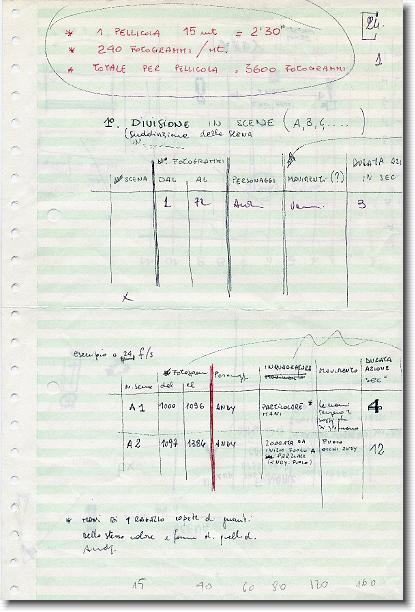 24
1
* 1 PELLICOLA 15 mt = 2'30"
* 240 FOTOGRAMMI/mt.
* TOTALE PER PELLICOLA = 3600 FOTOGRAMMI
1°. DIVISIONE IN SCENE (A, B, C, ....)
(suddivisione della scena
in
N° FOTOGRAMMI DURATA
N° SCENA DAL AL PERSONAGGI MOVIMENTI (?) IN SEC
1 72 3
X
esempio a 24 f/s
INQUADRATURA MOVIMENTO DURATA AZIONE SEC
N. Scena dal al Personagg.
A1 1000 1096 ANDY PARTICOLARE * MANI 4
A2 1097 1384 ANDY ZOOMATA DA INIZIO FUOCO A PARZIALE (ANDY. FUOCO) FUOCO OCCHI ANDY 12
* MANI DI 1 RAGAZZO coperte di guanti
dello stesso colore e forma di quelli di
Andy.
15 40 60 80 120 160